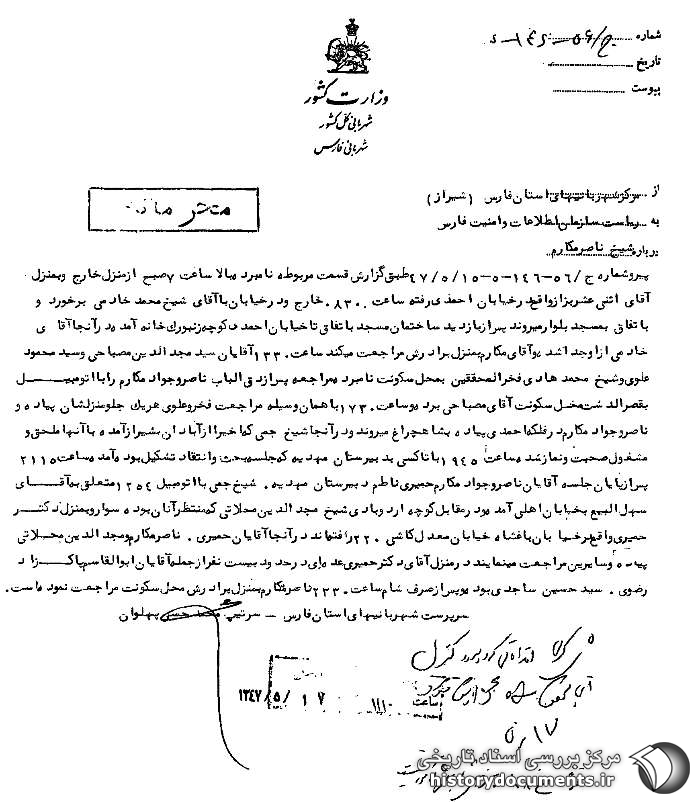 شماره
تاریخ
پیوست
وزارت کشور
شهربانی کل کشور
شهربانی فارس
از مرکز شهربانیهای استان فارس (شیراز)
به ریاست سازمان اطلاعات و امنیت فارس
درباره شیخ ناصر مکارم
پیرو شماره طبق گزارش قسمت مربوطه نامبرده بالا ساعت ۷ صبح از منزل خارج و بمنزل
آقای اثنی عشر بزاز واقع در خیابان احمدی رفته ساعت ۸۳۰ خارج و در خیابان با آقای شیخ محمد خادمی برخورد و
با تفاق بمسجد بلوار میروند پس از بازدید ساختمان مسجد با تفاق تا خیابان احمد کوچه زنبورک خانه آمد و در آنجا آقای
خادمی از او جدا شد و آقای مکارم بمنزل برادرش مراجعت میکند ساعت ۱۳۳۰ آقایان سید مجد الدین مصباحی و سید محمود
علوی و شیخ محمد هادی فخر المحققین بمحل سکونت نامبرده مراجعه پس از دق الباب ناصر و جواد مکارم را با اتومبیل
بقصر الدشت محل سکونت آقای مصباحی برده و ساعت ۱۷۳۰ با همان وسیله مراجعت فخر و علوی هریک جلو منزلشان پیاده و
ناصر و جواد مکارم در فلکه احمدی پیاده بشاهچراغ میروند و در آنجا شیخ جمی که اخیرا از آبادان بشیراز آمده با آنها ملحق و
مشغول صحبت و نماز شده ساعت ۱۹۴۵ با تاکسی بدبیرستان مهدیه که جلسه بحث و انتقاد تشکیل بوده آمد و ساعت ۲۱۱۵
پس از پایان جلسه آقایان ناصر و جواد مکارم حمیری ناظم دبیرستان مهدیه شیخ جمی با اتومبیل ۱۲۵۴ متعلق به آقای
سهل البیع بخیابان اهلی آمده و در مقابل کوچه اردوبادی شیخ مجد الدین محلاتی که منتظر آنان بوده سوار و بمنزل دکتر
حمیری واقع در خیابان باغشاه خیابان معدل کاشی ۲۲۰ رفته‌اند در آنجا آقایان حمیری ناصر مکارم و مجد الدین محلاتی
پیاده و سایرین مراجعت مینمایند در منزل آقای دکتر حمیری عده‌ای در حدود بیست نفر از جمله آقایان ابوالقاسم پاکزاد
رضوی سید حسین ساجدی بوده و پس از صرف شام ساعت ۲۳۳۰ ناصر مکارم بمنزل برادرش محل سکونت مراجعت نموده است.
سرپرست شهربانیهای استان فارس - سرتیپ پهلوان
ساعت
۱۳۴۷/۵/۱۷
مرکز بررسی اسناد تاریخی
historydocuments.ir